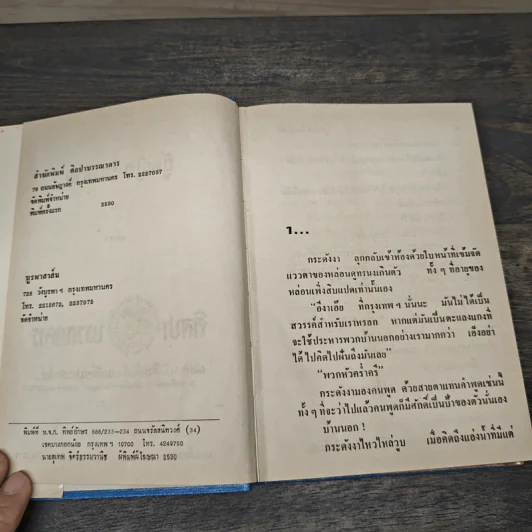 สำนักพิมพ์ ศิลปาบรรณาคาร
79 ถนนอัษฎางค์ กรุงเทพมหานคร โทร. 2227037
จัดพิมพ์จำหน่าย
พิมพ์ครั้งแรก 2530
บูรพาสาส์น
728 วังบูรพา ฯ กรุงเทพมหานคร
โทร.
จัดจำหน่าย
พิมพ์ที่ ห.จ.ก. ทิพย์อักษร 588/233-234 ถนนจรัลสนิทวงศ์ (34)
เขตบางกอกน้อย กรุงเทพ ฯ 10700 โทร. 4249750
นายสุเทพ ผู้พิมพ์ผู้โฆษณา 2530
1...
กระดังงา ลุกกลับเข้าห้องด้วยใบหน้าที่เข้มจัด
แววตาของหล่อนดูทรนงเกินตัว ทั้ง ๆ ที่อายุของ
หล่อนเพิ่งสิบแปดเท่านั้นเอง
“อีงาเอ๊ย ที่กรุงเทพ ฯ นั้นนะ มันไม่ได้เป็น
สวรรค์สำหรับเราหรอก หากแต่มันเป็นตะแลงแกงที่
จะใช้ประหารพวกบ้านนอกอย่างเรามากกว่า เอ็งอย่า
ได้ไปคิดไปฝันถึงมันเลย”
“พวกหัวคร่ำครึ”
กระดังงามองคนพูด ด้วยสายตาแทนคำพูดเช่นนี้
ทั้ง ๆ ที่จะว่าไปแล้วคนพูดก็มีศักดิ์เป็นป้าของตัวนั้นเอง
บ้านนอก !
กระดังงาไหวไหล่วูบ เมื่อคิดถึงแอ่งน้ำที่มีแต่